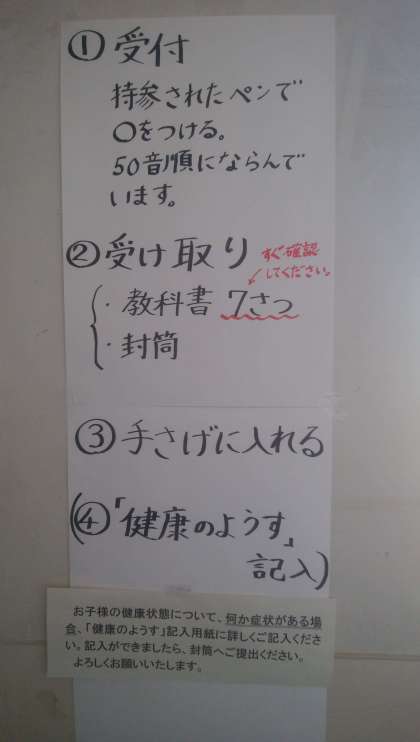 ① 受付
持参されたペンで
○をつける。
50音順にならんで
います。
② 受け取り
すぐ確認
してください。
・教科書 7さつ
・封筒
③ 手さげに入れる
(④「健康のようす」
記入)
お子様の健康状態について、何か症状がある場
合、「健康のようす」記入用紙に詳しくご記入くださ
い。記入ができましたら、封筒へご提出ください。
よろしくお願いいたします。